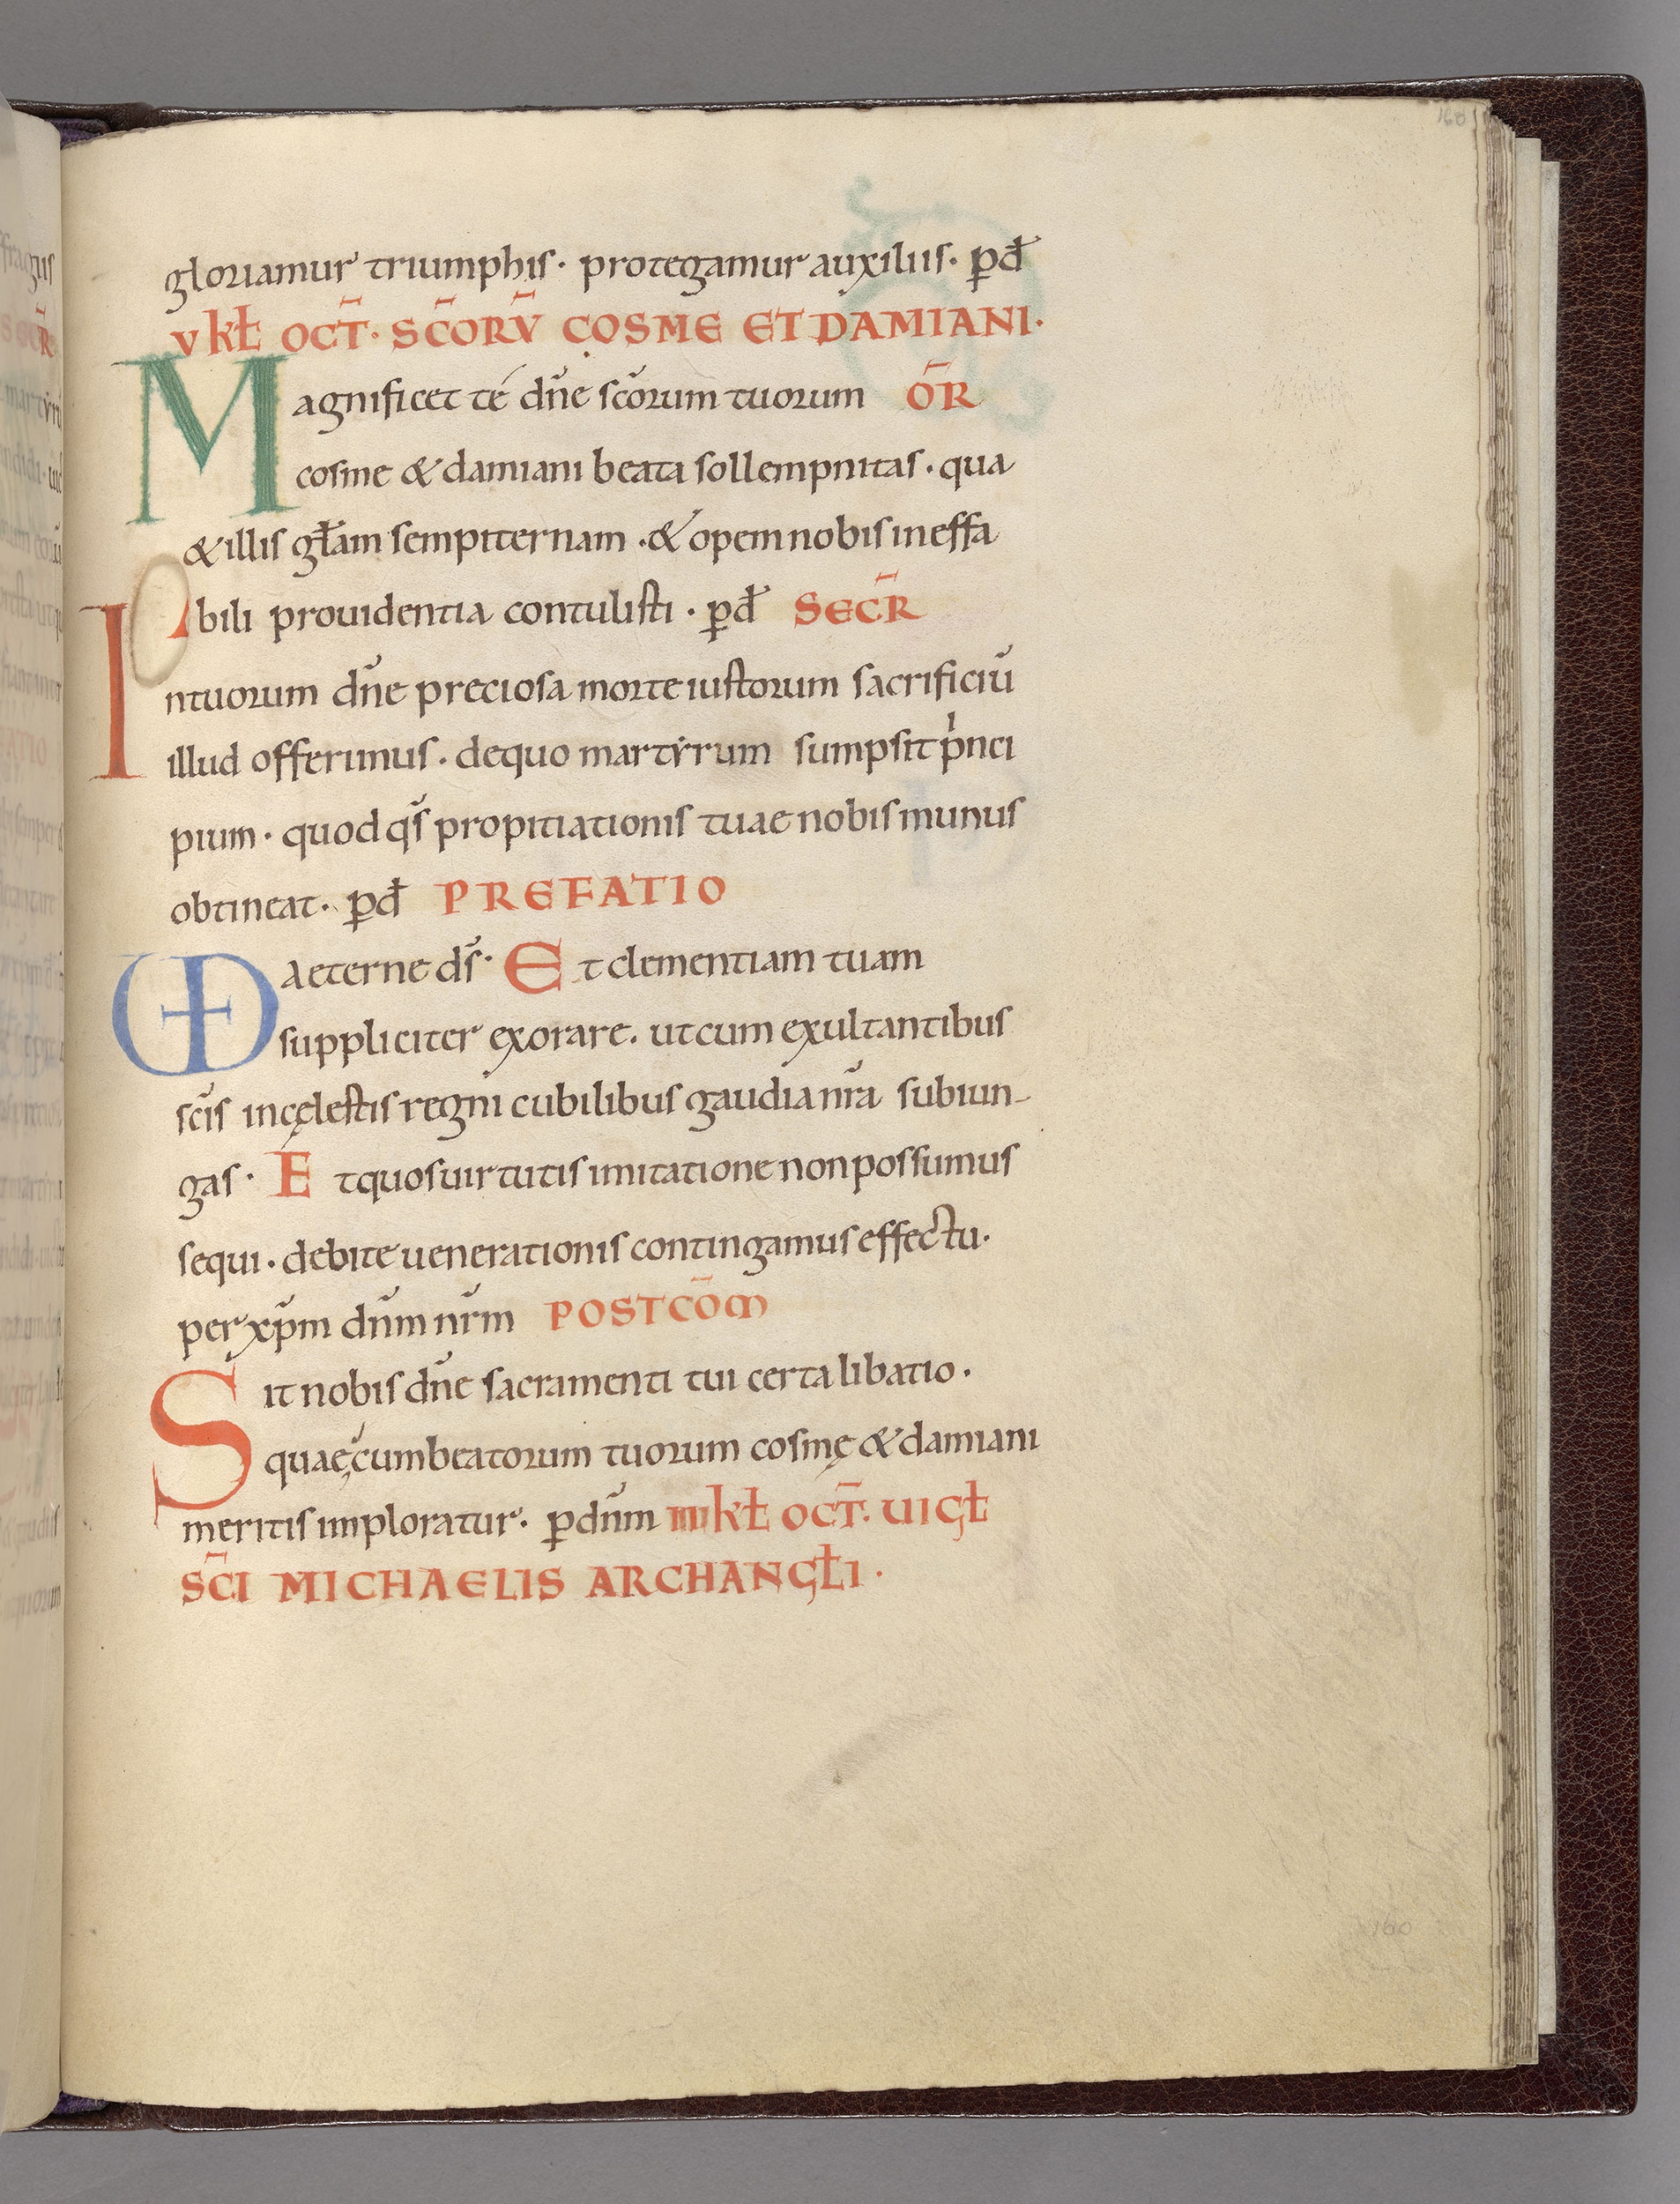 gloriamur triumphis· protegamur auxiliis· p̱đ
V kł OCT̄· SC̄ORV̄ COSME ET DAMIANI·
Magnificet té dn̄e scōrum tuorum OR̄
cosme & damiani beata sollempnitas· qua
& illis głam sempiternam ·& opem nobis ineffa
bili prouidentia contulisti· p̱đ SECR̄
In tuorum dn̄e preciosa morte iustorum sacrificiū
illud offerimus· de quo martẏrum sumpsit pͥnci
pium· quod qs̄ propitiationis tuae nobis munus
obtineat· p̱đ PREFATIO
VD aeterne ds̄· Et clementiam tuam
suppliciter exorare. ut cum exultantibus
sc̄is in cęlestis regni cubilibus gaudia nr̄a subiun-
gas· Et quos uirtutis imitatione non possumus
sequi· debite uenerationis contingamus effectu·
per xp̄m dn̄m nr̄m POSTCŌM
Sit nobis dn̄e sacramenti tui certa libatio·
quaę cum beatorum tuorum cosmę & damiani
meritis imploratur· p̱ dn̄m IIII kł OCT̄· UIGł
SC̄I MICHAELIS ARCHANGłI·
160